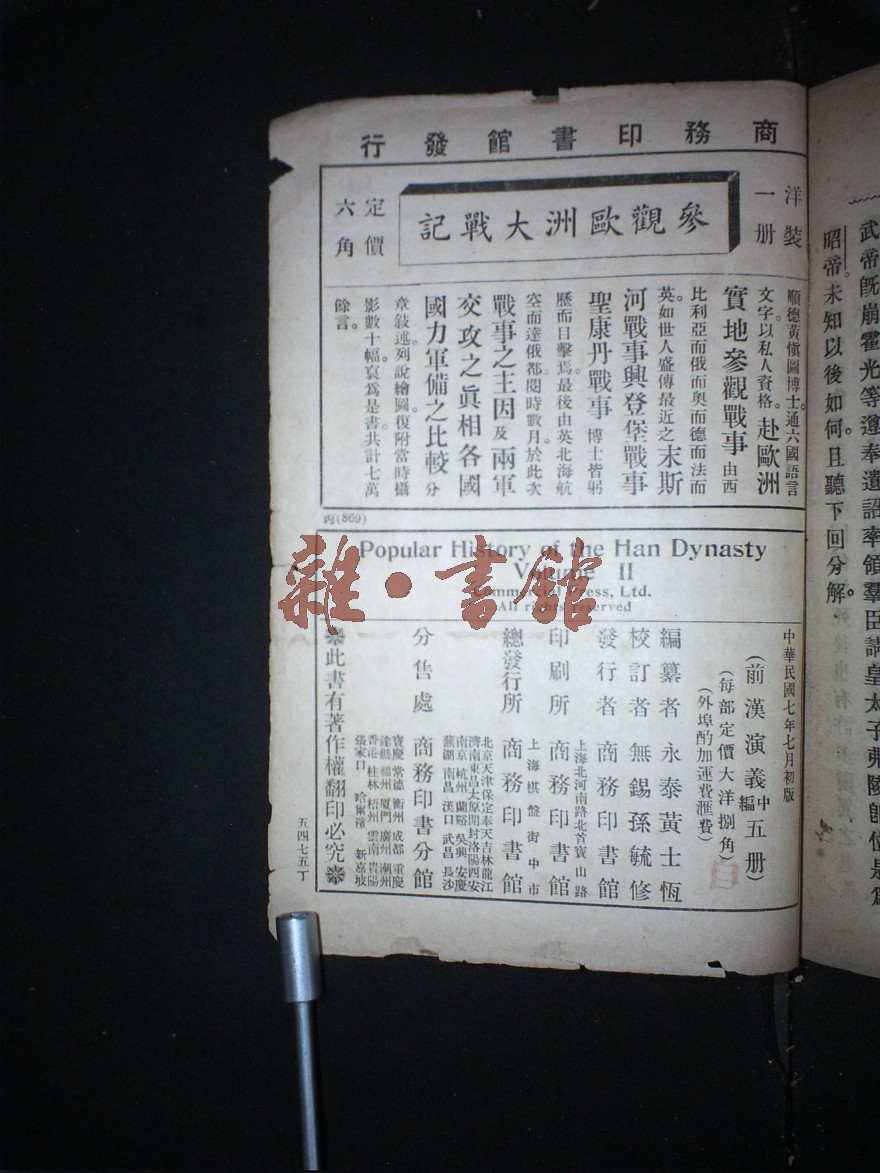 商務印書館發行
洋裝一册
參觀歐洲大戰記
定價六角
順德黃愼圖博士。通六國語言
文字。以私人資格。赴歐洲
實地參觀戰事由西
比利亞而俄而奧而德而法而
英。如世人盛傳最近之末斯
河戰事興登堡戰事
聖康丹戰事博士皆躬
歷而目擊焉。最後由英北海航
空而達俄都。閱時數月。於此次
戰事之主因及兩軍
交攻之眞相各國
國力軍備之比較分
章敍述。列說繪圖。復附當時攝
影數十幅。裒爲是書。共計七萬
餘言。
丙(869)
Popular History of the Han Dynasty
Volume II
Commercial Press, Ltd.
All rights reserved
中華民國七年七月初版
(前漢演義中編五册)
(每部定價大洋捌角)
(外埠酌加運費滙費)
編纂者 永泰黃士恆
校訂者 無錫孫毓修
發行者 商務印書館
上海北河南路北首寶山路
印刷所 商務印書館
上海棋盤街中市
總發行所 商務印書館
北京天津保定奉天吉林龍江
濟南東昌太原開封洛陽西安
南京 杭州 蘭谿 吳興 安慶
蕪湖 南昌 漢口 武昌 長沙
分售處 商務印書分館
寶慶 常德 衡州 成都 重慶
達縣 福州 厦門 廣州 潮州
香港 桂林 梧州 雲南 貴陽
張家口 哈爾濱 新嘉坡
此書有著作權翻印必究
五四七五丁
武帝旣崩霍光等遵奉遺詔率領羣臣請皇太子弗陵卽位是爲
昭帝。未知以後如何。且聽下回分解。
雜·書館